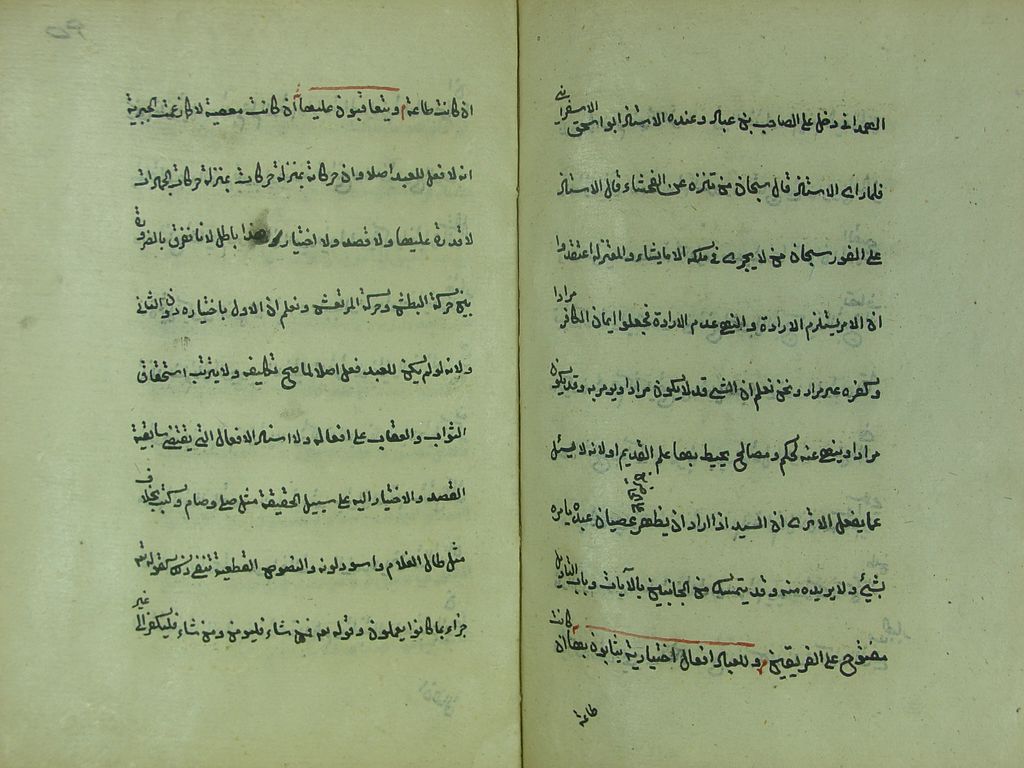 الهمداني دخل على الصاحب بن عباد وعنده الاستاذ ابو اسحق الاسفرايني
فلما راى الاستاذ قال سبحان من تنزه عن الفحشاء قال الاستاذ
على الفور سبحان من لا يجرى فى ملكه الا ما يشاء والمعتزلة اعتقدوا
ان الامر يستلزم الارادة والنهى عدم الارادة فجعلوا ايمان الكافر مرادا
وكفره غير مراد ونحن نعلم ان الشئ قد لا يكون مرادا ويومر به وقد يكون
مرادا وينهى عنه لحكم ومصالح يحيط بها علم القديم او لانه لا يسئل
عما يفعل الا ترى ان السيد اذا اراد ان يظهر على الحاضرين عصيان عبده يامره
بشئ ولا يريده منه وقد يتمسك من الجانبين بالآيات وباب التاويل
مفتوح على الفريقين وللعباد افعال اختيارية يثابون بها ان كانت
طاعة
ان كانت طاعة ويتعاقبون عليها ان كانت معصية لا كما زعمت الجبرية
انه لا فعل للعبد اصلا وان حركاته بمنزلة حركات بمنزلة حركات الجمادات
لا قدرة عليها ولا قصد ولا اختيار وهذا باطل لانا نفرق بالضرورة
بين حركة البطش وحركة المرتعش ونعلم ان الاول باختياره دون الثانى
ولانه لو لم يكن للعبد فعل اصلا لما صح تكليفه ولا يترتب استحقاق
الثواب والعقاب على افعاله ولا اسناد الافعال التى يقتضى سابقية
القصد والاختيار اليه على سبيل الحقيقة مثل صلى وصام وكتب بخلاف
مثل طال الغلام واسود لونه والنصوص القطعية تنفى ذلك كقوله تع
جزاء بما كانوا يعملون وقوله تع فمن شاء فليومن ومن شاء فليكفر الى غير